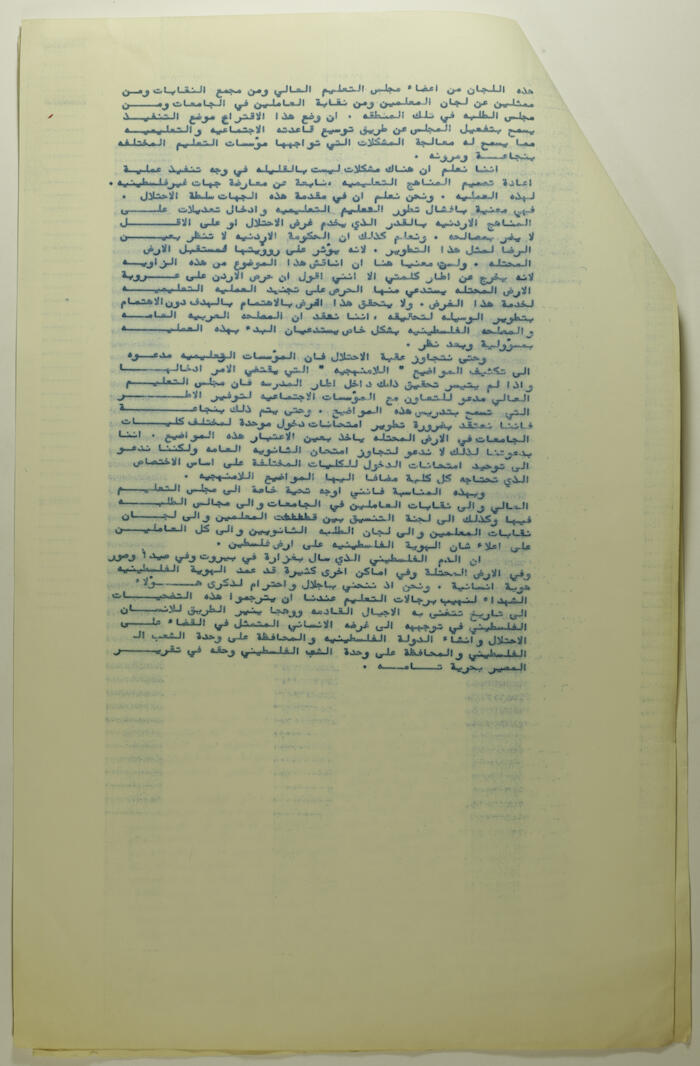 هذه اللجان من اعضاء مجلس التعليم العالي ومن مجمع النقابات ومن
ممثلين عن لجان المعلمين ومن نقابة العاملين في الجامعات ومن
مجلس الطلبه في تلك المنطقه . ان وضع هذا الاقتراح موضع التنفيذ
يسمح بتفعيل المجلس عن طريق توسيع قاعدته الاجتماعيه والتعليميه
مما يسمح له معالجة المشكلات التي تواجهها مؤسسات التعليم المختلفه
بنجاعة ومرونه .
اننا نعلم ان هناك مشكلات ليست بالقليله في وجه تنفيذ عملية
اعادة تصميم المناهج التعليميه ،نابعة عن معارضة جهات غيرفلسطينيه .
لهذه العمليه . ونحن نعلم ان في مقدمة هذه الجهات سلطة الاحتلال .
فهي معنية بافشال تطور العمليم التعليميه وادخال تعديلات على
المناهج الاردنيه بالقدر الذي يخدم غرض الاحتلال او على الاقل
لا يضر بمصالحه . ونعلم كذلك ان الحكومة الاردنيه لا تنظر بعين
الرضا لمثل هذا التطوير . لانه يؤثر على رؤويتها لمستقبل الارض
المحتله . ولست معنيا هنا ان اناقش هذا الموضوع من هذه الزاويه
لانه يخرج عن اطار كلمتي الا انني اقول ان حرص الاردن على عروبة
الارض المحتله يستدعي منها الحرص على تجنيد العمليه التعليميه
لخدمة هذا الغرض . ولا يتحقق هذا الغرض بالاهتمام بالهدف دون الاهتمام
بتطوير الوسيله لتحقيقه ، اننا نعقد ان المصلحه العربيه العامه
والمصلحه الفلسطينيه بشكل خاص يستدعيان البدء بهذه العمليه
بمسؤولية وبعد نظر .
وحتى نتجاوز عقبة الاحتلال فان المؤسسات التعليميه مدعوه
الى تكثيف المواضيع " اللامنهجيه " التي يقتضي الامر ادخالها
واذا لم يتيسر تحقيق ذلك داخل اطار المدرسه فان مجلس التعليم
العالي مدعو للتعاون مع المؤسسات الاجتماعيه لتوفير الاطر
التي تسمح بتدريس هذه المواضيع . وحتى يتم ذلك بنجاعة
فاننا نعتقد بضرورة تطوير امتحانات دخول موحدة لمختلف كليات
الجامعات في الارض المحتله ياخذ بعين الاعتبار هذه المواضيع . اننا
بدعوتنا لذلك لا ندعو لتجاوز امتحان الثانويه العامه ولكننا ندعو
الى توحيد امتحانات الدخول للكليات المختلفة على اساس الاختصاص
الذي تحتاجه كل كلية مضافا اليها المواضيع اللامنهجيه .
وبهذه المناسبة فانني اوجه تحية خاصة الى مجلس التعليم
العالي والى نقابات العاملين في الجامعات والى مجالس الطلبه
فيها وكذلك الى لجنة التنسيق بين المعلمين والى لجان
نقابات المعلمين والى لجان الطلبه الثانويين والى كل العاملين
على اعلاء شان الهوية الفلسطينيه على ارض فلسطين .
ان الدم الفلسطيني الذي سال بغزارة في بيروت وفي صيدا وصور
وفي الارض المحتلة وفي اماكن اخرى كثيرة قد عمد الهوية الفلسطينيه
هوية انسانية . ونحن اذ ننحني باجلال واحترام لذكرى هؤلاء
الشهداء لنهيب برجالات التعليم عندنا ان يترجموا هذه التضحيات
الى تاريخ تتغنى به الاجيال القادمه ووهجا ينير الطريق للانسان
الفلسطيني في توجهه الى غرضه الانساني المتمثل في القضاء على
الاحتلال وانشاء الدولة الفلسطينيه والمحافظة على وحدة الشعب الـ
الفلسطيني والمحافظة على وحدة الشعب الفلسطيني وحقه في تقرير
المصير بحرية تامه .